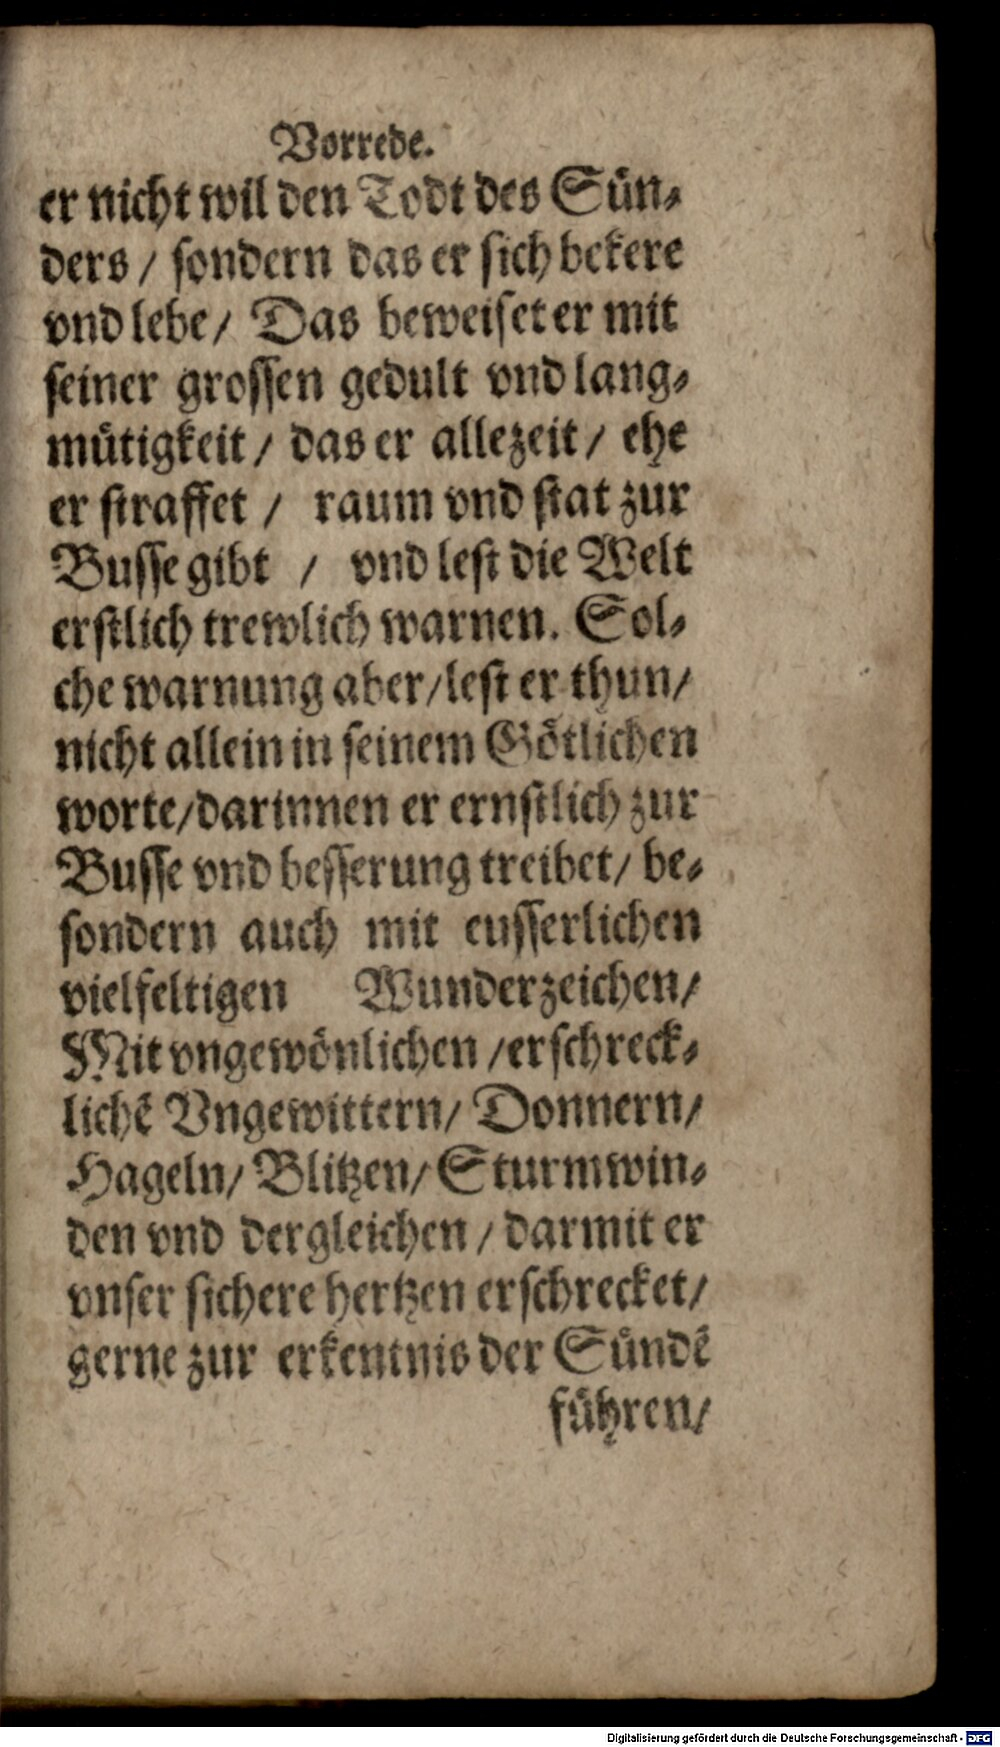 Vorrede.
er nicht wil den Todt des Sün⸗
ders / sondern das er sich bekere
vnd lebe / Das beweiset er mit
seiner grossen gedult vnd lang⸗
mütigkeit / das er allezeit / ehe
er straffet / raum vnd stat zur
Busse gibt / vnd lest die Welt
erstlich trewlich warnen. Sol⸗
che warnung aber / lest er thun /
nicht allein in seinem Götlichen
worte / darinnen er ernstlich zur
Busse vnd besserung treibet / be⸗
sondern auch mit eusserlichen
vielfeltigen Wunderzeichen /
Mit vngewönlichen / erschreck⸗
lichẽ Vngewittern / Donnern /
Hageln / Blitzen / Sturmwin⸗
den vnd dergleichen / darmit er
vnser sichere hertzen erschrecket /
gerne zur erkentnis der Sündẽ
führen /
Digitalisierung gefördert durch die Deutsche Forschungsgemeinschaft - DFG